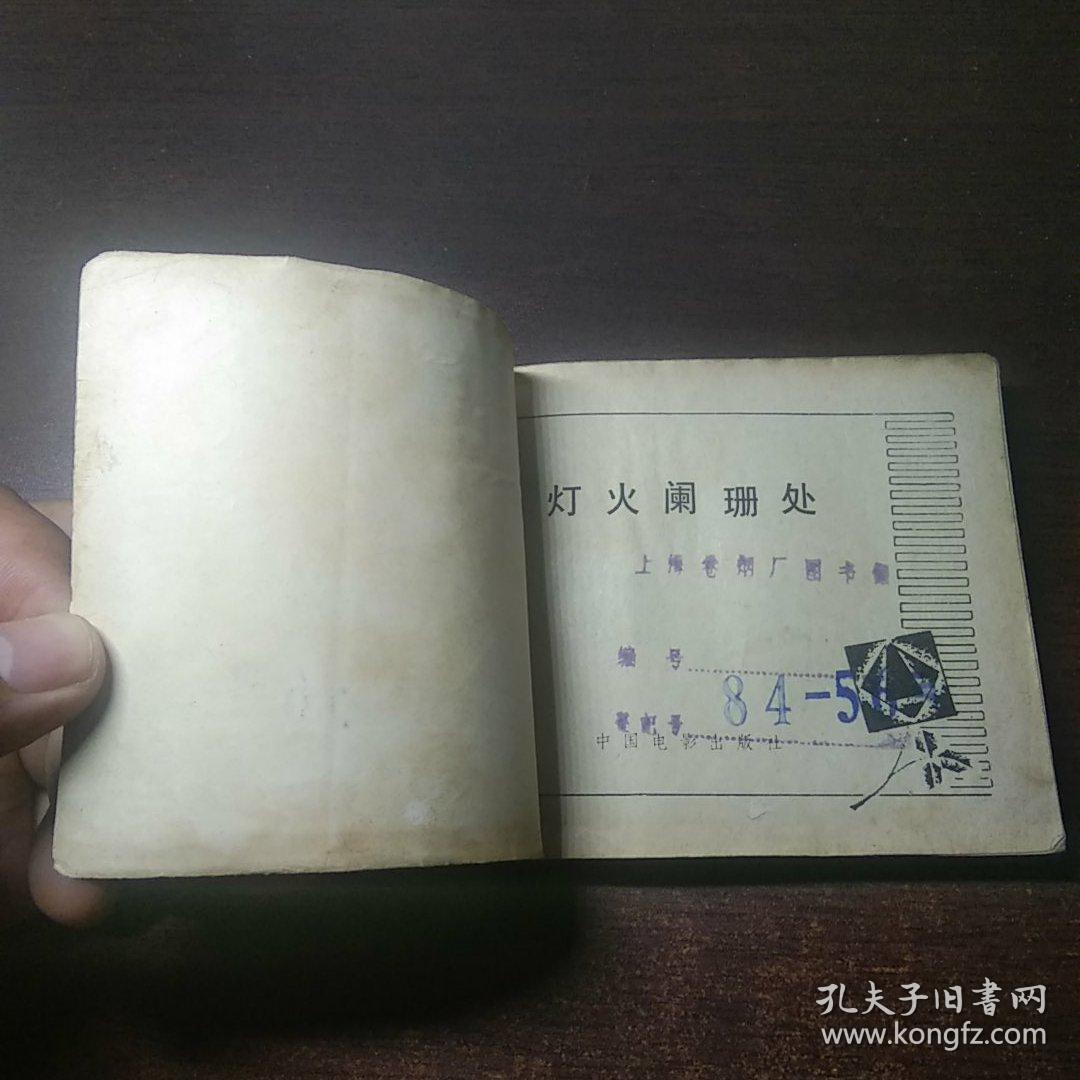 灯火阑珊处
上海卷烟厂图书馆
编号
84-5
登记号
中国电影出版社
孔夫子旧書网
www.kongfz.com